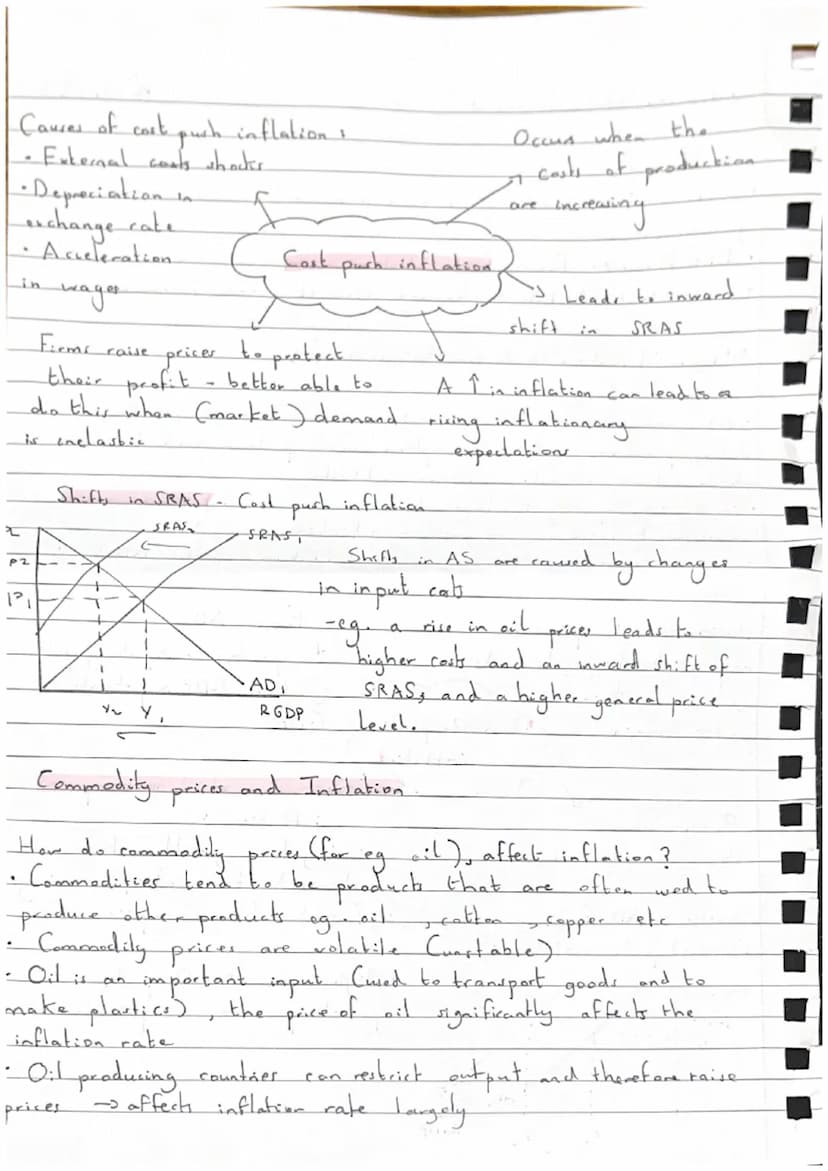 Causes of cost push inflation :
• External costs shocks
• Depreciation in
exchange rate
• Acceleration
in wages
Occurs when the
costs of production
are increasing
Cost push inflation
Leads to inward
shift in SRAS
Firms raise prices to protect
their profit - better able to
do this when (market) demand
is inelastic
A ↑ in inflation can lead to a
rising inflationary
expectations
Shifts in SRAS - Cost push inflation
SRAS2
SRAS1
P2
P1
AD1
Y2 Y1
RGDP
Shifts in AS are caused by changes
in input cots
-eg. a rise in oil prices leads to
higher costs and an inward shift of
SRAS, and a higher general price
level.
Commodity prices and Inflation
How do commodity prices (for eg oil), affect inflation?
• Commodities tend to be products that are often used to
produce other products eg. oil , cotton , copper etc
• Commodity prices are volatile (unstable)
• Oil is an important input (used to transport goods and to
make plastics) , the price of oil significantly affects the
inflation rate
• Oil producing countries can restrict output and therefore raise
prices → affects inflation rate largely